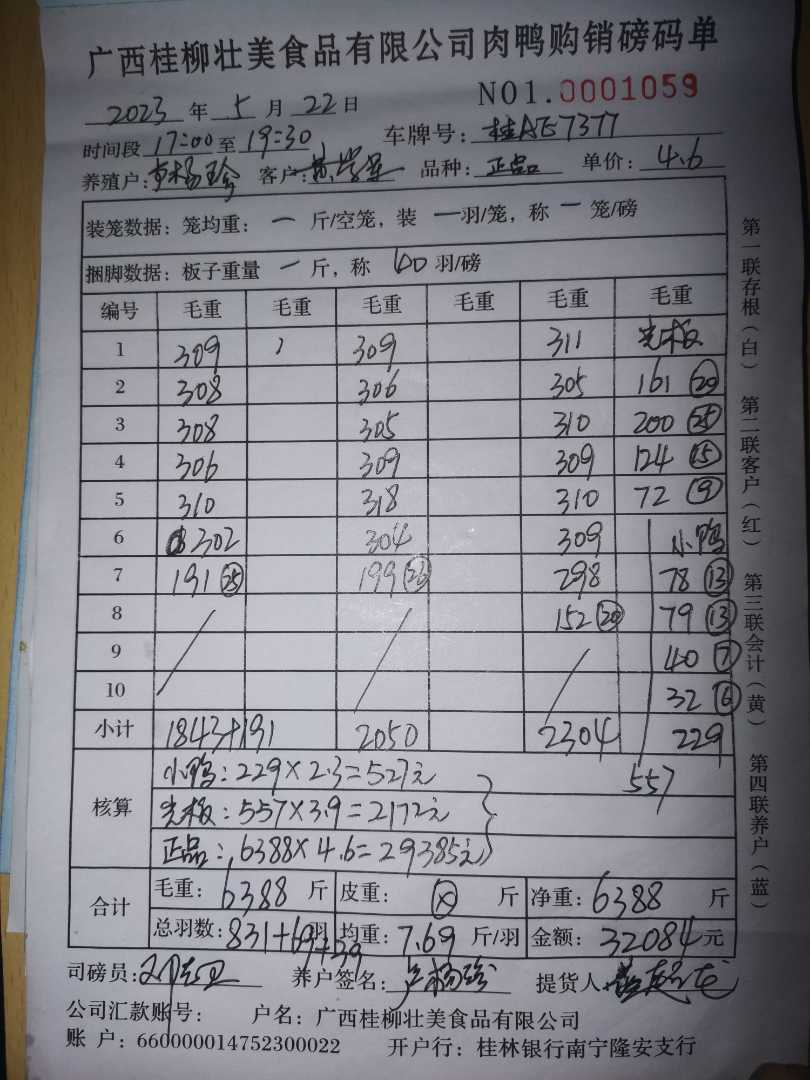 广西桂柳壮美食品有限公司肉鸭购销磅码单
2023 年 5 月 22 日 NO1.0001059
时间段 17:00 至 19:30 车牌号: 桂AE7377
养殖户: 卢杨珍 客户: 品种: 正品 单价: 4.6
装笼数据: 笼均重: 一 斤/空笼, 装 一 羽/笼, 称 一 笼/磅
捆脚数据: 板子重量 一 斤, 称 40 羽/磅
编号 毛重 毛重 毛重 毛重 毛重 毛重
1 309 309 311 光板
2 308 306 305 161 20
3 308 305 310 200 25
4 306 309 309 124 15
5 310 318 310 72 9
6 302 304 309 小鸭
7 191 25 199 26 298 78 13
8 152 20 79 13
9 40 7
10 32 6
小计 1843+191 2050 2304 229
557
核算
小鸭: 229×2.3=527元
光板: 557×3.9=2172元
正品: 6388×4.6=29385元
合计 毛重: 6388 斤 皮重: 斤 净重: 6388 斤
总羽数: 831+69+39 羽 均重: 7.69 斤/羽 金额: 32084 元
司磅员: 养户签名: 卢杨珍 提货人:
公司汇款账号: 户名: 广西桂柳壮美食品有限公司
账 户: 660000014752300022 开户行: 桂林银行南宁隆安支行
第一联存根(白) 第二联客户(红) 第三联会计(黄) 第四联养户(蓝)